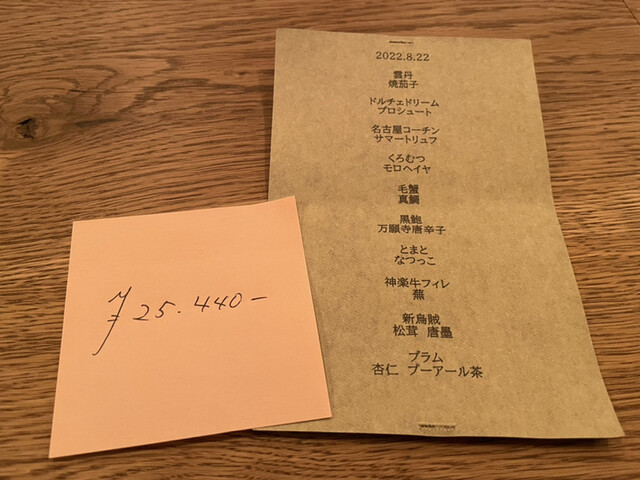 2022.8.22
雲丹
焼茄子
ドルチェドリーム
プロシュート
名古屋コーチン
サマートリュフ
くろむつ
モロヘイヤ
毛蟹
真鯛
黒鮑
万願寺唐辛子
とまと
なつっこ
神楽牛フィレ
蕪
新烏賊
松茸 唐墨
プラム
杏仁 プーアール茶
¥25.440-